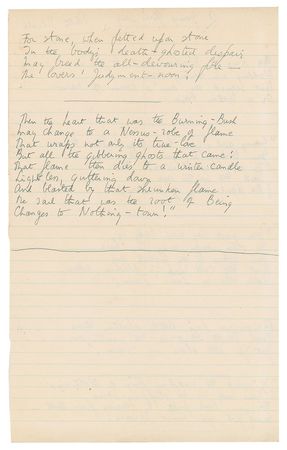 For stone, when fretted upon stone
In the body's death-ghosted despair
May breed the all-devouring fire —
The lovers' Judgment-noon!
Then the heart that was the Burning-Bush
May change to a Nessus-robe of flame
That wraps not only its true-love
But all the gibbering ghosts that came!
That flame then dies to a winter candle
Lightless, guttering down
And blasted by that shrunken flame
The soul that was the root of Being
Changes to Nothing-town!"